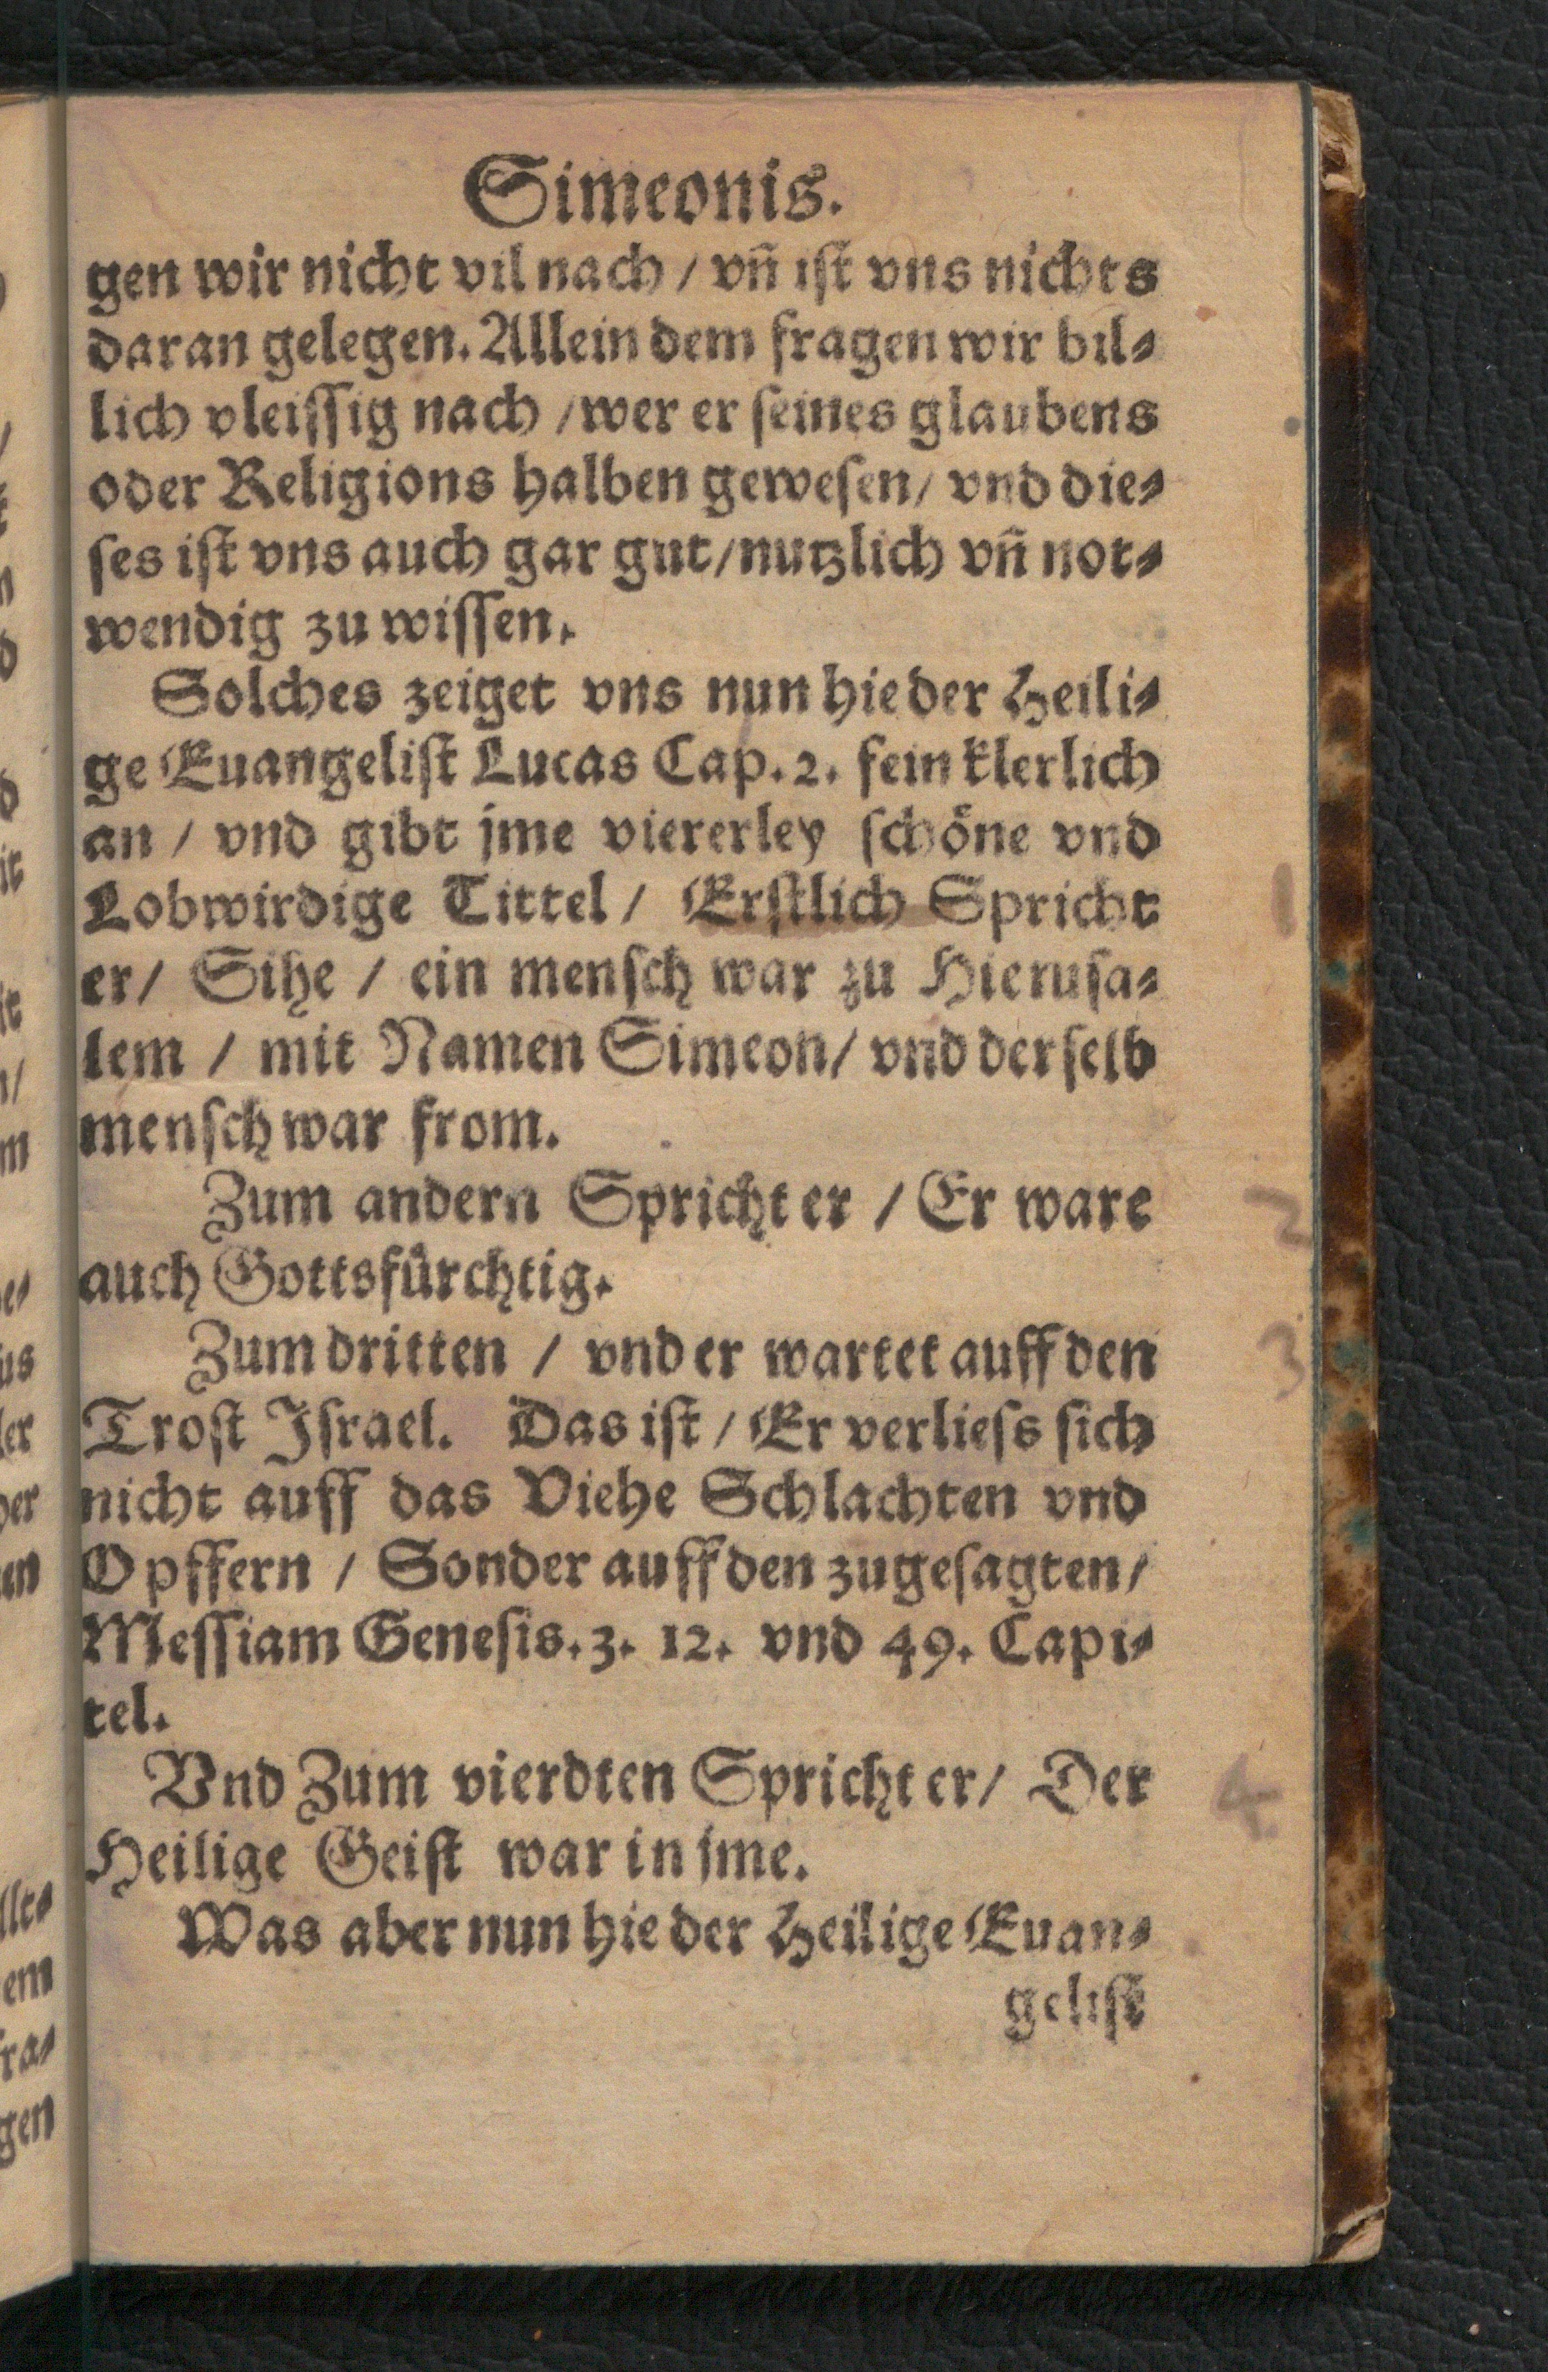 Simeonis.
gen wir nicht vil nach / vñ ist vns nichts
daran gelegen. Allein dem fragen wir bil⸗
lich vleiſſig nach / wer er ſeines glaubens
oder Religions halben geweſen / vnd die⸗
ſes iſt vns auch gar gut / nutzlich vñ not⸗
wendig zu wiſſen.
Solches zeiget vns nun hie der Heili⸗
ge Euangeliſt Lucas Cap. 2. fein klerlich
an / vnd gibt jme viererley ſchöne vnd
Lobwirdige Tittel / Erſtlich Spricht
1
er / Sihe / ein menſch war zu Hieruſa⸗
lem / mit Namen Simeon / vnd der ſelb
menſch war from.
Zum andern Spricht er / Er ware
2
auch Gottsfürchtig.
Zum dritten / vnd er wartet auff den
3
Troſt Iſrael. Das iſt / Er verlieſs ſich
nicht auff das Viehe Schlachten vnd
Opffern / Sonder auff den zugeſagten /
Meſſiam Geneſis. 3. 12. vnd 49. Capi⸗
tel.
Vnd Zum vierdten Spricht er / Der
4.
Heilige Geiſt war in jme.
Was aber nun hie der Heilige Euan⸗
geliſt